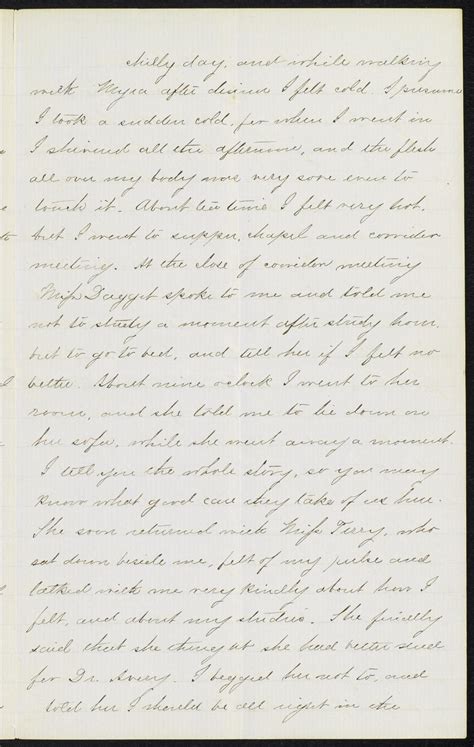 chilly day, and while walking
with Myra after dinner I felt cold. I presume
I took a sudden cold, for when I went in
I shivered all the afternoon, and the flesh
all over my body was very sore even to
touch it. About tea time I felt very hot,
but I went to supper, chapel and corridor
meeting. At the close of corridor meeting
Miss Daggett spoke to me and told me
not to study a moment after study hour,
but to go to bed, and tell her if I felt no
better. About nine o'clock I went to her
room, and she told me to lie down on
her sofa, while she went away a moment.
I tell you the whole story, so you may
know what good care they take of us here.
She soon returned with Miss Terry, who
sat down beside me, felt of my pulse and
talked with me very kindly about how I
felt, and about my studies. She finally
said that she thought she had better send
for Dr. Avery. I begged her not to, and
told her I should be all right in the